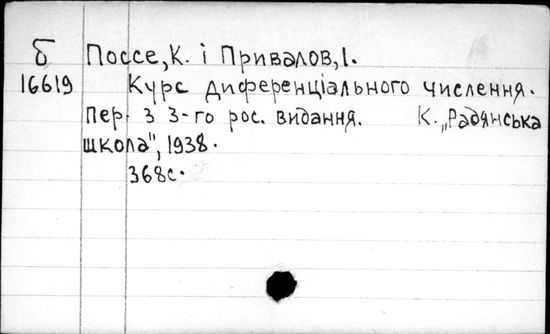 б Поссе, К. і Привалов, І.
16619 Курс диференціального числення.
Пер. з 3-го рос. видання. К. „Радянська
школа", 1938.
368с.